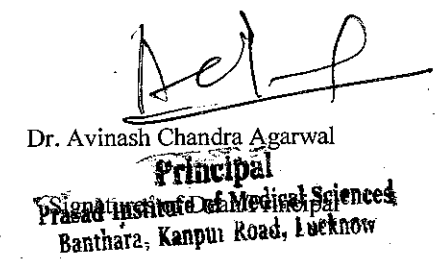 Dr. Avinash Chandra Agarwal
Principal
Signature of Dean/Principal
Prasad Institute of Medical Sciences
Banthara, Kanpur Road, Lucknow